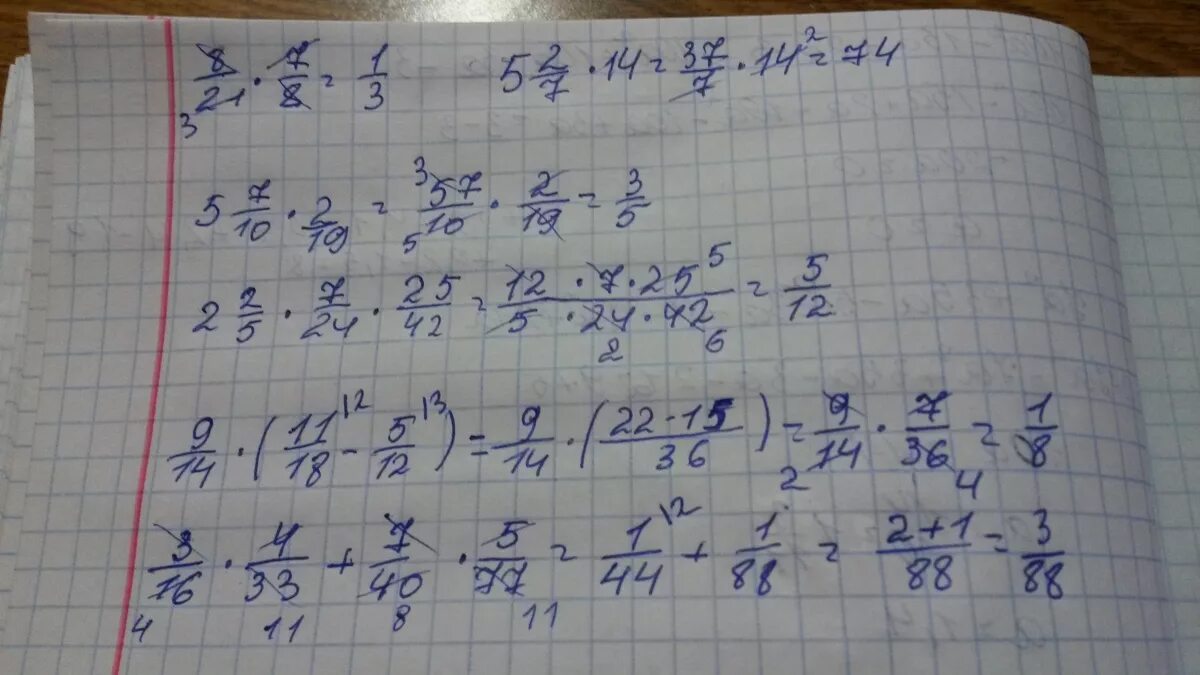 8/21 · 7/8 = 1/3    5 2/7 · 14 = 37/7 · 14 = 74
3 2
5 7/10 · 2/19 = 57/10 · 2/19 = 3/5
3 5
2 2/5 · 7/24 · 25/42 = 12 · 7 · 25 / 5 · 24 · 42 = 5/12
5 2 6
9/14 · (11/18 - 5/12) = 9/14 · (22 - 15 / 36) = 9/14 · 7/36 = 1/8
\2 \3 2 4
3/16 · 4/33 + 7/40 · 5/77 = 1/44 + 1/88 = 2+1/88 = 3/88
\2 4 11 8 11